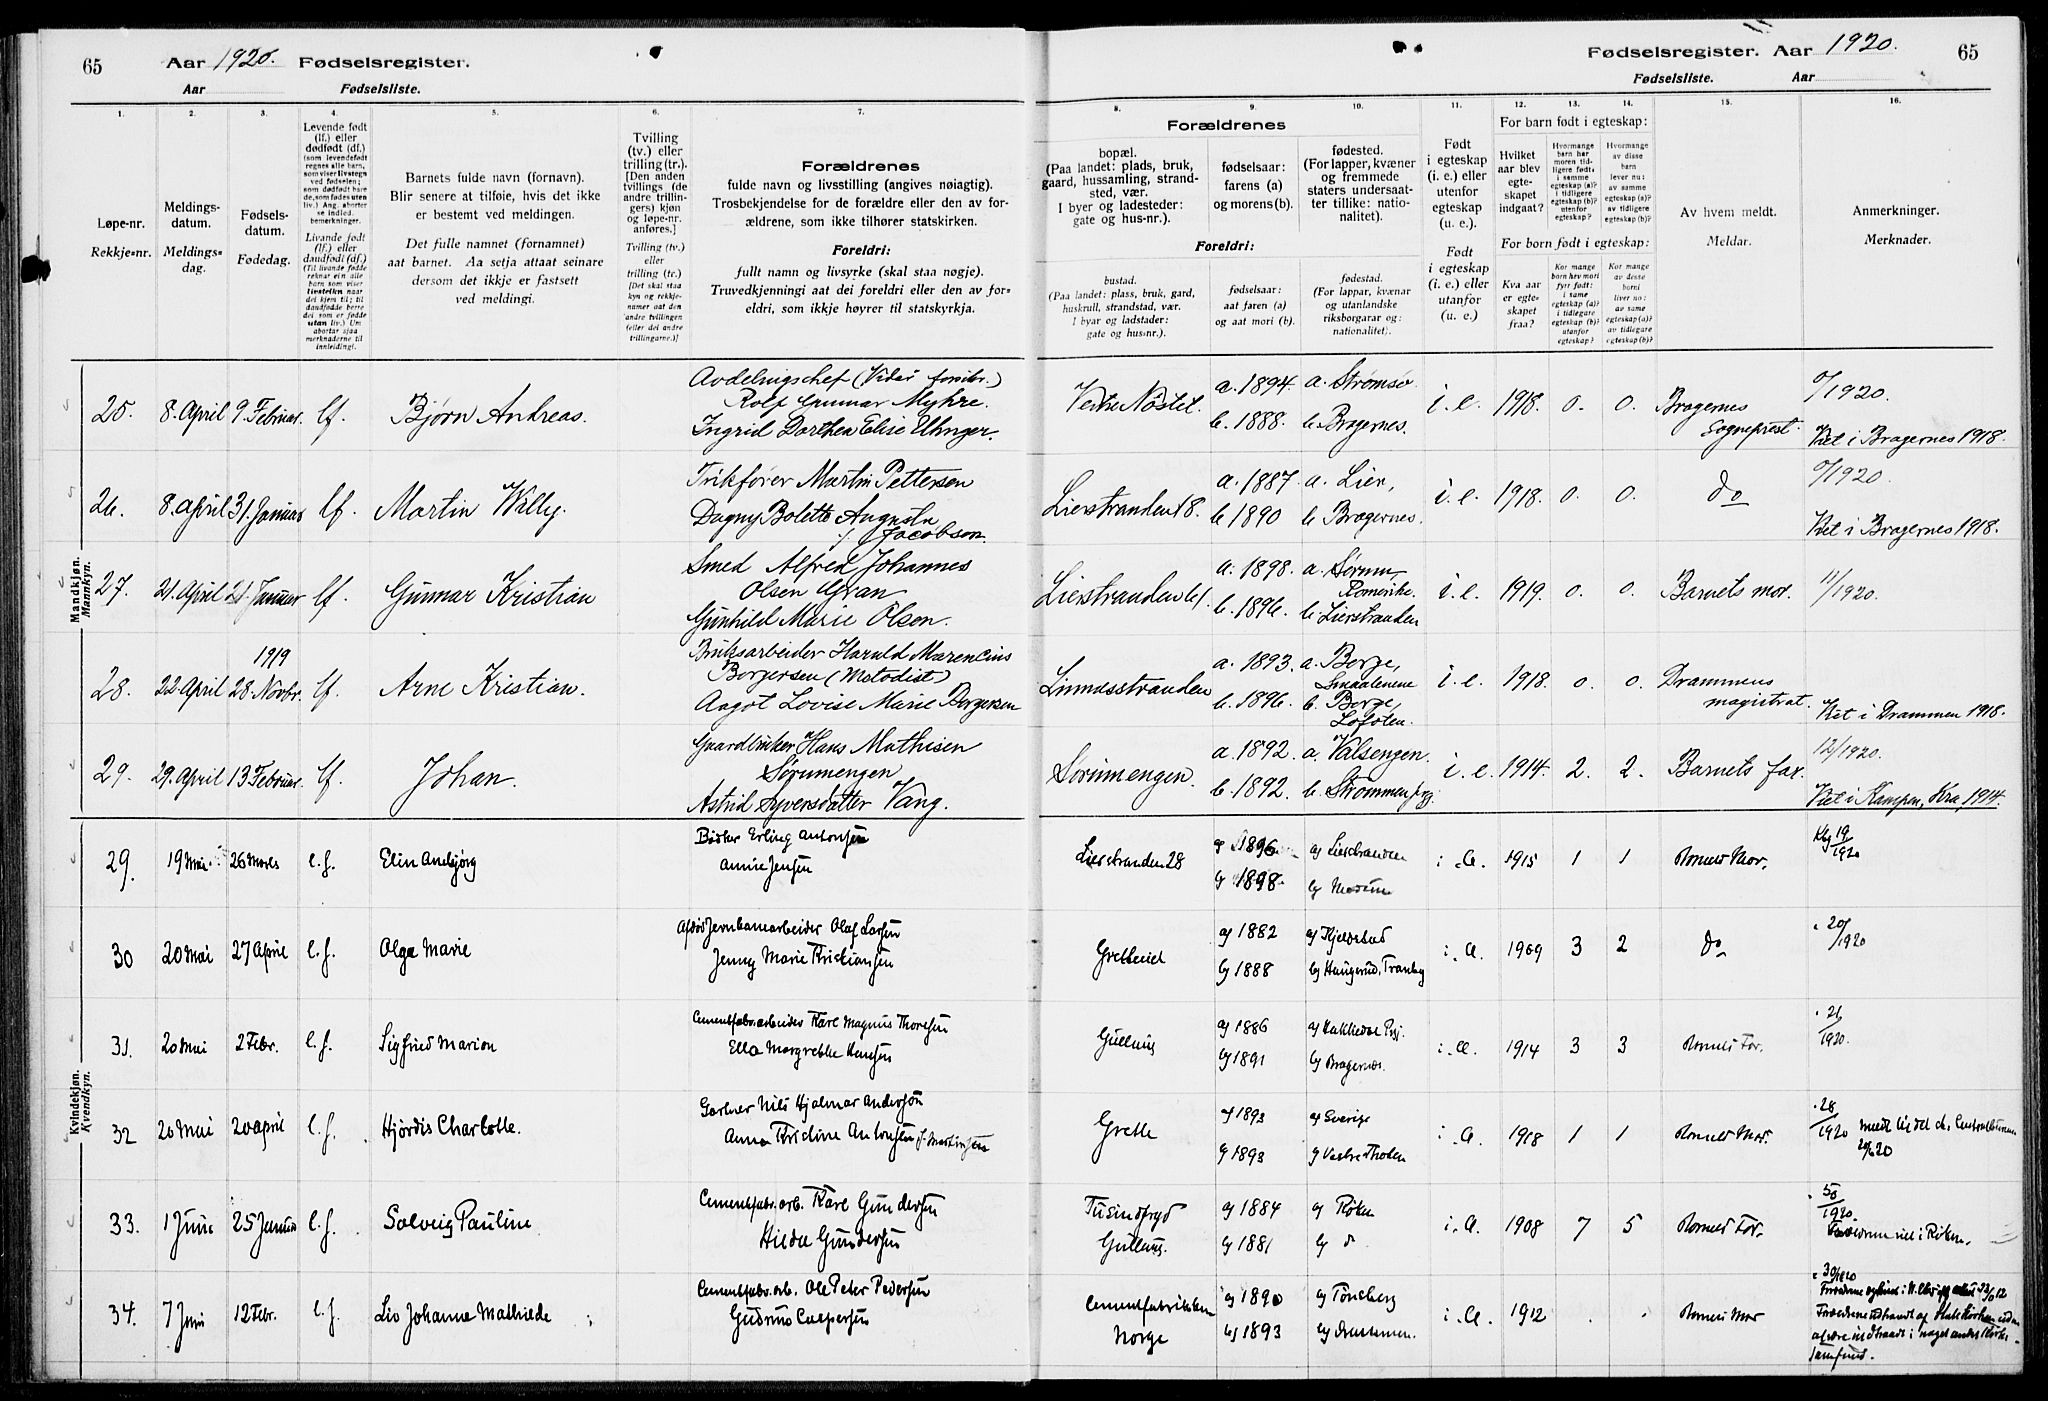 65 Aar 1920. Fødselsregister.
Aar Fødselsliste.
Fødselsregister. Aar 1920. 65
Fødselsliste. Aar
1. 2. 3. 4. 5. 6. 7. 8. 9. 10. 11. 12. 13. 14. 15. 16.
Løpe-nr.
Rekkje-nr.
Meldings-
datum.
Meldings-
dag.
Fødsels-
datum.
Fødedag.
Levende født
(lf.) eller
dødfødt (df.)
(som levendefødt
regnes alle barn,
som viser livstegn
ved fødselen;
som dødfødt bare
de, som fødes uten
liv.) Ang. aborter
se indled.
bemerkninger.
Livande født
(lf.) eller
daudfødt (df.)
(Til livande fødde
reknar ein alle
born som viser
livsteikn naar
dei kjem til; til
daudfødde berre
dei som er fødde
utan liv.) Um
abortar sjaa
merknaderne til
innleiding).
Barnets fulde navn (fornavn).
Blir senere at tilføie, hvis det ikke
er bestemt ved meldingen.
Det fulle namnet (fornamnet)
aat barnet. Aa setja attaat seinare
dersom det ikkje er fastsett
ved meldingi.
Tvilling
(tv.) eller
trilling (tr.).
[Den anden
tvillings (de
andre trillin-
gers) kjøn
og løpe-nr.
anføres.]
Tvilling (tv.)
eller
trilling (tr.)
[Det skal staa
kyn og rekkje-
numer aat den
andre tvillingen
(eller dei andre
trillingarne.)]
Forældrenes
fulde navn og livsstilling (angives nøiagtig).
Trosbekjendelse for de forældre eller den av for-
ældrene, som ikke tilhører statskirken.
Foreldri:
fullt namn og livsyrke (skal staa nøgje).
Truvedkjenningi aat dei foreldri eller den av for-
eldri, som ikkje høyrer til statskyrkja.
Forældrenes
bopæl.
(Paa landet: plads, bruk,
gaard, hussamling, strand-
sted, vær.
I byer og ladesteder:
gate og hus-nr.).
fødselsaar:
farens (a)
og morens (b).
fødested.
(For lapper, kvæner
og fremmede
staters undersaat-
ter tillike: natio-
nalitet).
Foreldri:
bustad.
(Paa landet: plass, bruk, gard,
huskrull, strandstad, vær.
I byar og ladstader:
gate og hus-nr.).
fødselsaar:
aat faren (a)
og aat mori (b).
fødestad.
(For lappar, kvænar
og utanlandske
riksborgarar og:
nationalitet).
Født
i egteskap
(i. e.) eller
utenfor
egteskap
(u. e.).
Født
i egteskap
(i. e.) eller
utanfor
(u. e.)
For barn født i egteskap:
Hvilket
aar blev
egte-
skapet
indgaat?
Hvormange
barn har
moren tid-
ligere født:
i samme
egteskap (a)?
i tidligere
egteskap (b)?
utenfor
egteskap?
Hvormange
av disse
barn
lever nu:
av samme
egteskap (a)?
av tidligere
egteskap (b)?
For born født i egteskap:
Kva aar
er egte-
skapet
fraa?
Kor mange
born hev mori
fyrr født:
i same
egteskap (a)?
i tidlegare
egteskap (b)?
utanfor
egteskap?
Kor mange
av desse
borni
liver no:
av same
egteskap (a)?
av tidlegare
egteskap (b)?
Av hvem meldt.
Meldar.
Anmerkninger.
Merknader.
Mandkjøn.
Mannkyn.
25. 8. April 9. Februar. lf. Bjørn Andreas.
Avdelingschef (Vidar forsikr.)
Rolf Gunnar Myhre.
Ingrid Dorthea Elise Ellinger.
Vestre Nøste 1. a. 1894. a. Strømsø
b. 1888. b. Bragernes. i. e. 1918. 0. 0. Bragernes
Sogneprest. 9/1920.
Viet i Bragernes 1918.
26. 8. April 31. Januar lf. Martin Willy.
Trikfører Martin Pettersen
Dagny Bolette Augusta
f. Jacobson.
Lierstranden 18. a. 1887. a. Lier,
b. 1890 b. Bragernes. i. e. 1918. 0. 0. do
9/1920.
Viet i Bragernes 1918.
27. 21. April 21. Januar lf. Gunnar Kristian
Smed Alfred Johannes
Olsen Gran
Gunhild Marie Olsen.
Lierstranden 61. a. 1898. a. Sørum,
Romerike.
b. 1896. b. Lierstranden i. e. 1919. 0. 0. Barnets mor. 11/1920.
28. 22. April 1919
28. Novbr. lf. Arne Kristian.
Bruksarbeider Harald Marencius
Borgersen (Metodist)
Aagot Lovise Marie Borgersen
Linnesstranden a. 1893. a. Borge,
Smaalenene
b. 1896. b. Borge,
Lofoten. i. e. 1918. 0. 0. Drammens
magistrat. Viet i Drammen 1918.
29. 29. April 13. Februar. lf. Johan.
Gaardbruker Hans Mathisen
Sørumengen
Astrid Syversdatter Vang.
Sørumengen. a. 1892. a. Valsengen.
b. 1892. b. Strømmen i. e. 1914. 2. 2. Barnets far. 12/1920.
Viet i Kampen, Kra, 1914.
Kvindekjøn.
Kvendkyn.
29. 19 Mai 26 Marts l. f. Elin Annbjørg
Bødker Erling Antonsen
Annie Jensen
Lierstranden 28 a) 1896 a) Lierstranden
b) 1898 b) Modum i. Æ. 1915 1 1 Barnets Mor. Kbg 19/1920
30 20 Mai 27 April l. f. Olga Marie
Afdød Jernbanearbeider Olaf Larsen
Jenny Marie Kristiansen
a) 1882 a) Kjeldstad
b) 1888 b) Haugerud, Tranby i. Æ. 1909 3 2 Do 20/1920
31. 20 Mai 2 Febr. l. f. Sigfried Marion
Cementfabr.arbeider Karl Magnus Thoresen
Ella Margrethe Hansen
Gullaug a) 1886
b) 1891 b) Bragernæs. i. Æ. 1914 3 3 Barnets Far. 21/1920.
32 20 Mai 20 April l. f. Hjørdis Charlotte.
Gartner Nils Hjalmar Anderson
Anna Kristine Antonsen f. Martinsen
Grette a) 1893 a) Sverige
b) 1893 i. Æ. 1918 1 1 Barnets Mor. 28/1920
33. 1 Juni 25 Januar l. f. Solveig Pauline
Cementfabr.arb. Karl Gundersen
Hilda Gundersen
Tusindfryd
Gullaug. a) 1884 a) Røken
b) 1881 b) d i. Æ. 1908 7 5 Barnets Far. 50/1920.
Forældrene viet i Røken.
34. 7 Juni 12 Febr. l. f. Liv Johanne Mathilde
Cementfabr.arb. Ole Peter Pedersen
Gudrun Caspersen
Cementfabrikken
Norge a) 1890 a) Tønsberg
b) 1893 b) Drammen. i. Æ. 1912 Barnets Mor